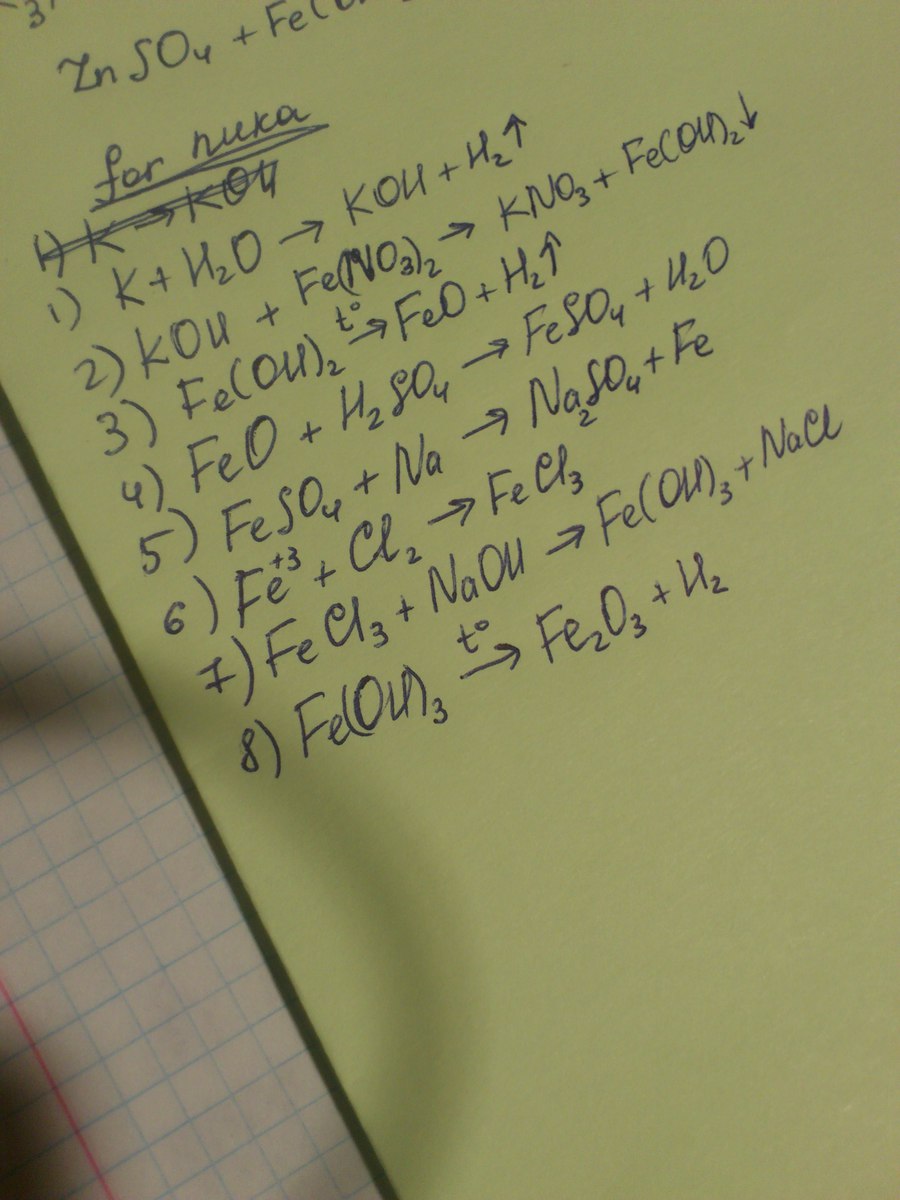 3)
ZnSO₄ + Fe(OH)
for пика
1) K → KOH
1) K + H₂O → KOH + H₂↑
2) KOH + Fe(NO₃)₂ → KNO₃ + Fe(OH)₂↓
3) Fe(OH)₂ t° → FeO + H₂↑
4) FeO + H₂SO₄ → FeSO₄ + H₂O
5) FeSO₄ + Na → Na₂SO₄ + Fe
6) Fe⁺³ + Cl₂ → FeCl₃
7) FeCl₃ + NaOH → Fe(OH)₃ + NaCl
8) Fe(OH)₃ t° → Fe₂O₃ + H₂